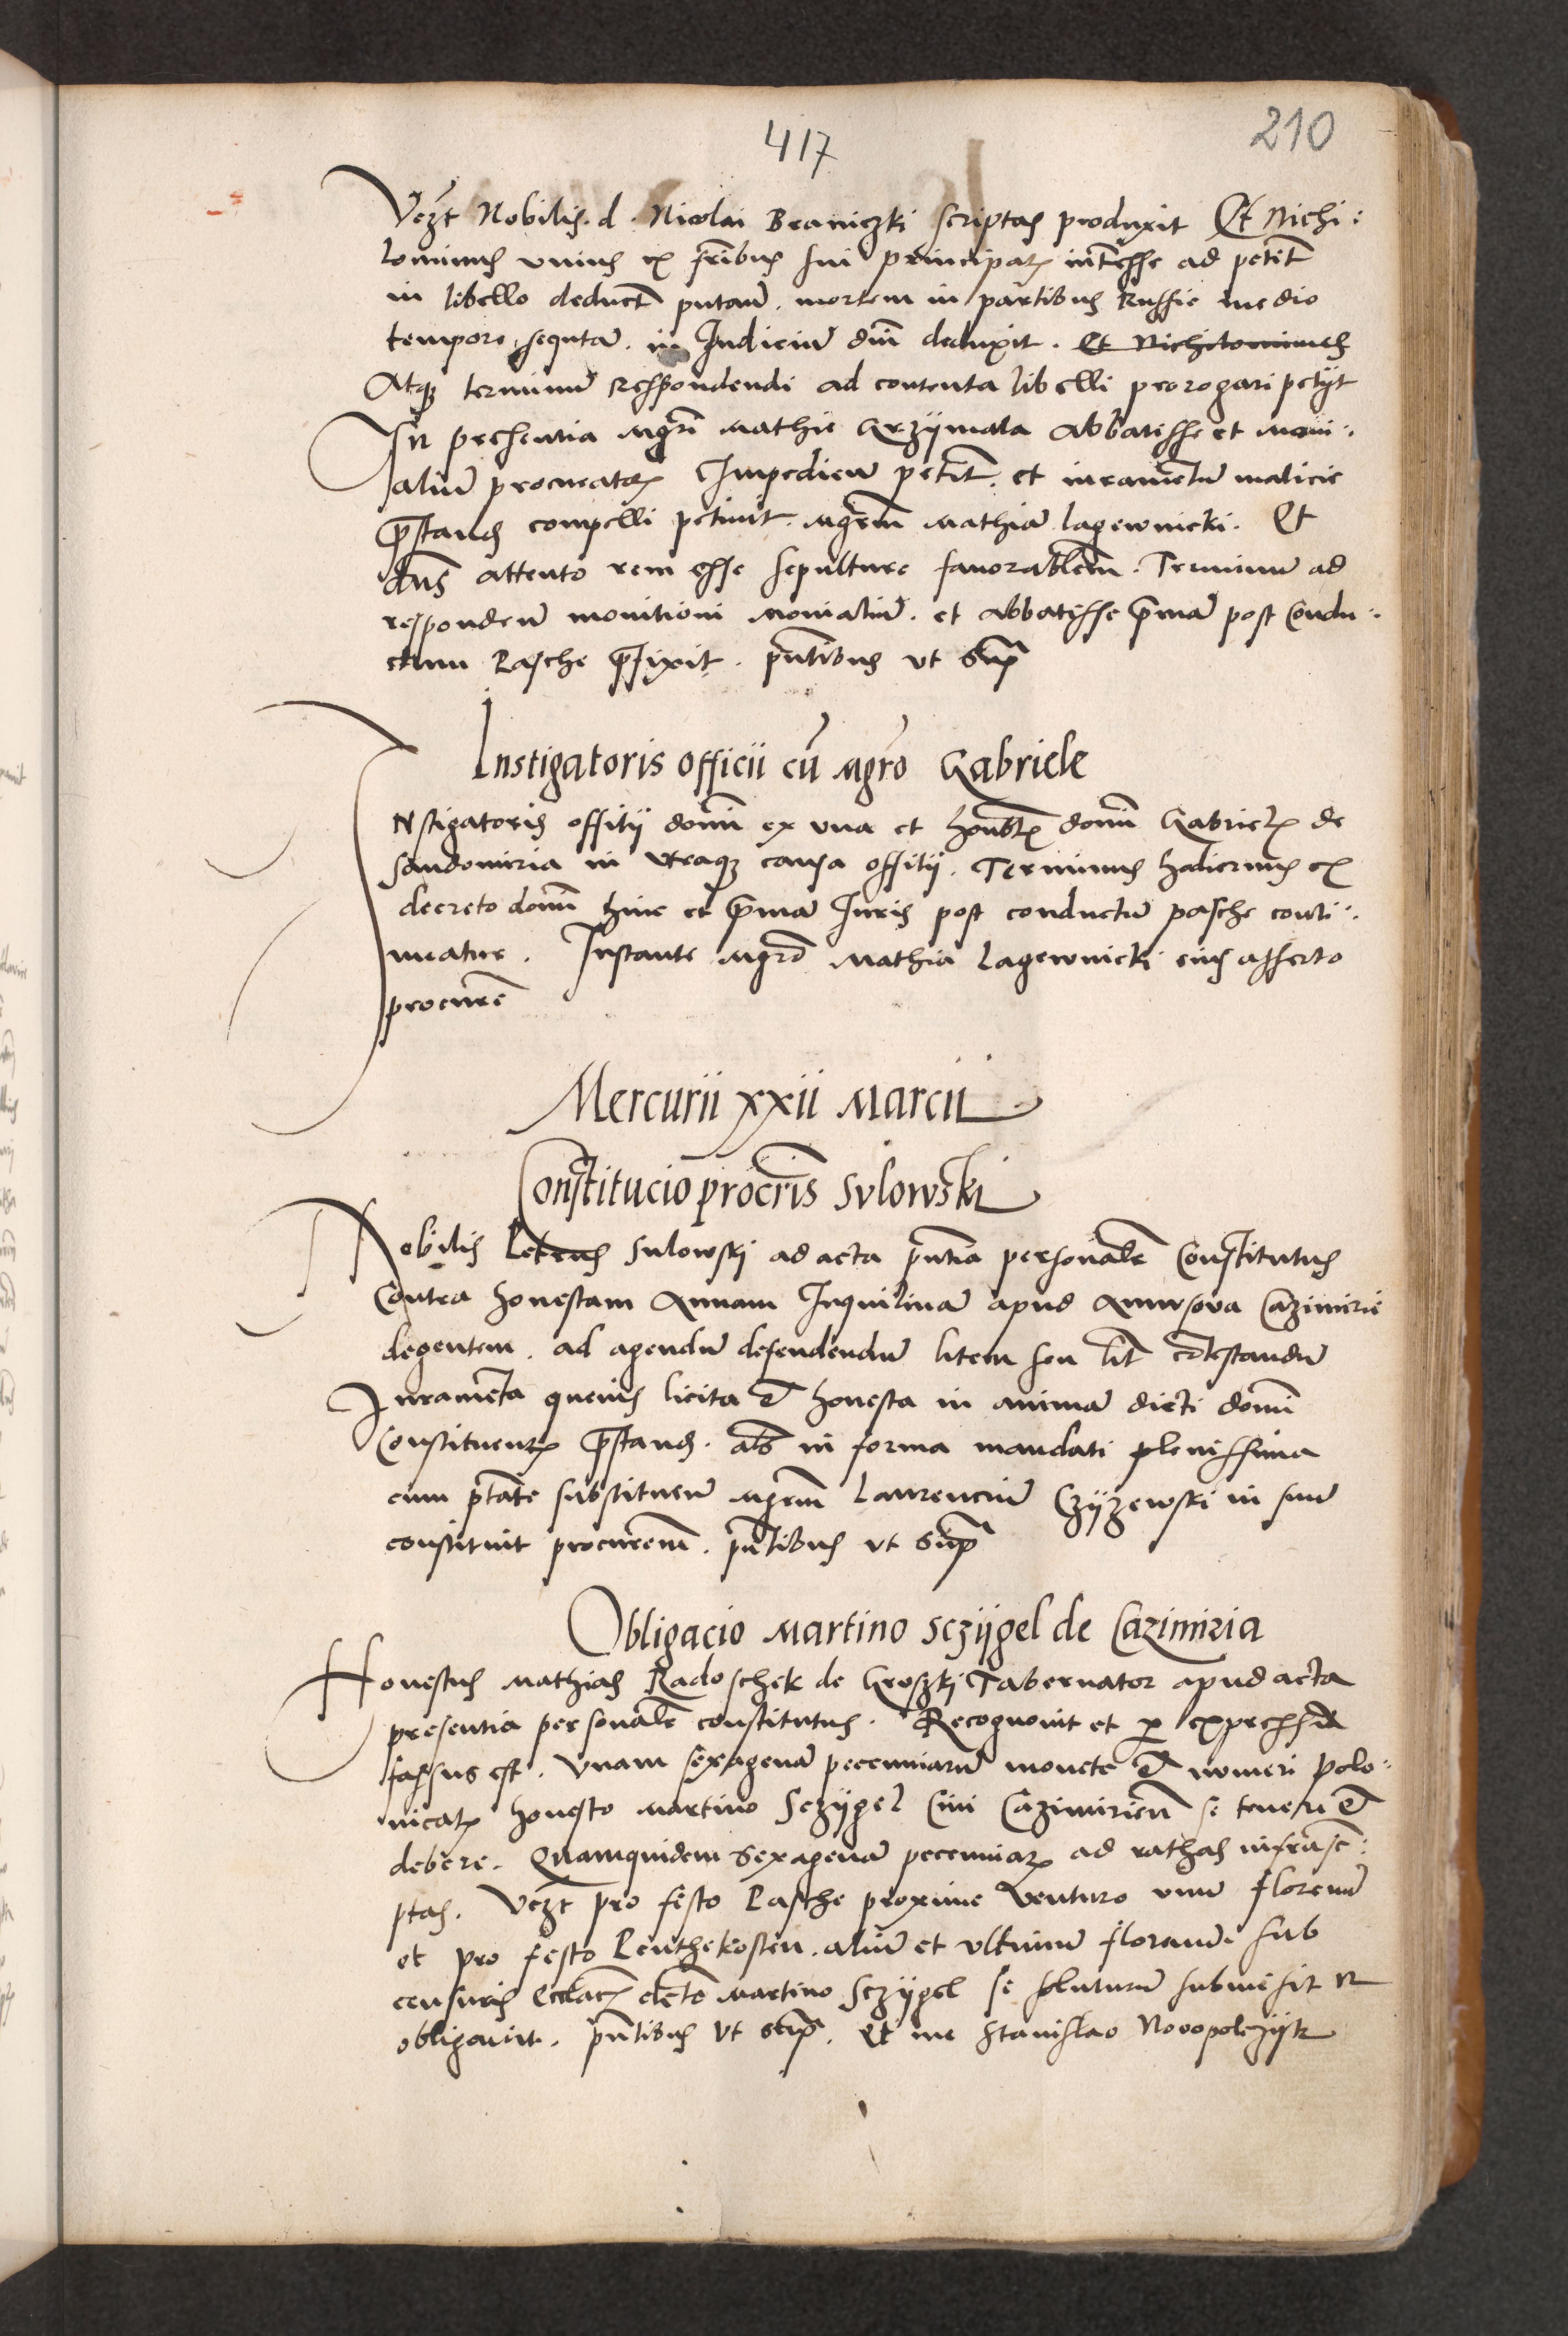 417
210
Vezt Nobilis. d. Nicolai Braniczki scriptas produxit Et Nichi:
lominus unius ex fribus sui principal intesse ad petit
in libello deduct putau. mortem in partibus Russie medio
tempore sequta. in Judiciu dni deduxit. Et Nichilominus
Atq terminu respondendi ad contenta libelli prorogari petyt
In presentia mgri Mathie Grzymala Abbatisse et moni:
aliu procurator Impedien petit. et iurametu malicie
prestand compelli petiuit. Mgrm Mathia Lagewnicki. Et
dns attento rem esse sepulture fauorablem. Terminu ad
responden monitioni monialiu. et Abbatisse prima post Condu:
ctum Pasche prefixit. pntibus ut sup
Instigatoris officii cu mgro Gabriele
Nstigatoris offitij domi ex una et honbl domi Gabriel de
Sandomiria in utraq causa offitij. Terminus hodiernus ex
decreto domi hinc et prima Juris post conductu pasche conti:
nuatur. Instante mgro Mathia Lagewnicki eius asserto
procure
Mercurii xxii Marcii
Constitucio procris Sulowski
Nobilis Petrus Sulowski ad acta pntia personale Constitutus
Contra honestam Annam Inquilina apud Cazimirie
degentem. ad agendu defendendu litem seu lit cotestandu
Iurameta queuis licita et honesta in anima dicti domi
Constituent prestand. als in forma mandati plenissima
cum ptate substituen mgrm Laurenciu Czyzewski in suu
constituit procurem. pntibus ut sup
Obligacio Martino Sczygel de Cazimiria
Honestus Mathias Radoschek de Groszki Tabernator apud acta
presentia personale constitutus. Recognouit et p expresse
fassus est. Vnam sexagena pecuniaru monete et numeri polo:
nical honesto Martino Sczygel Ciui Cazimirien se teneri et
debere. Quamquidem sexagena pecuniar ad rathas infrasc:
ptas. Vezt pro festo Pasche proxime venturo unu florenu
et pro festo Penthekosten. aliu et ultimu florenu sub
censuris Ecclac dicto Martino Sczygel se soluturu submisit et
obligauit. pntibus ut sup. Et me Stanislao Nouopolczyk